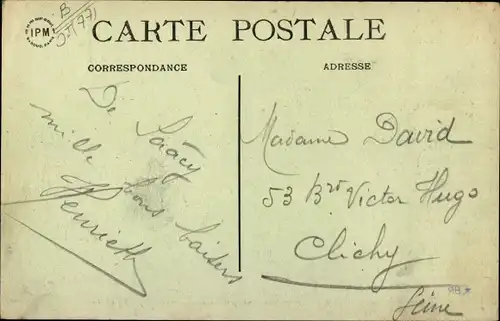 IPM
CARTE POSTALE
CORRESPONDANCE
ADRESSE
De Saâcy
mille bons baisers
Henriette
Madame David
53 Brd Victor Hugo
Clichy
Seine